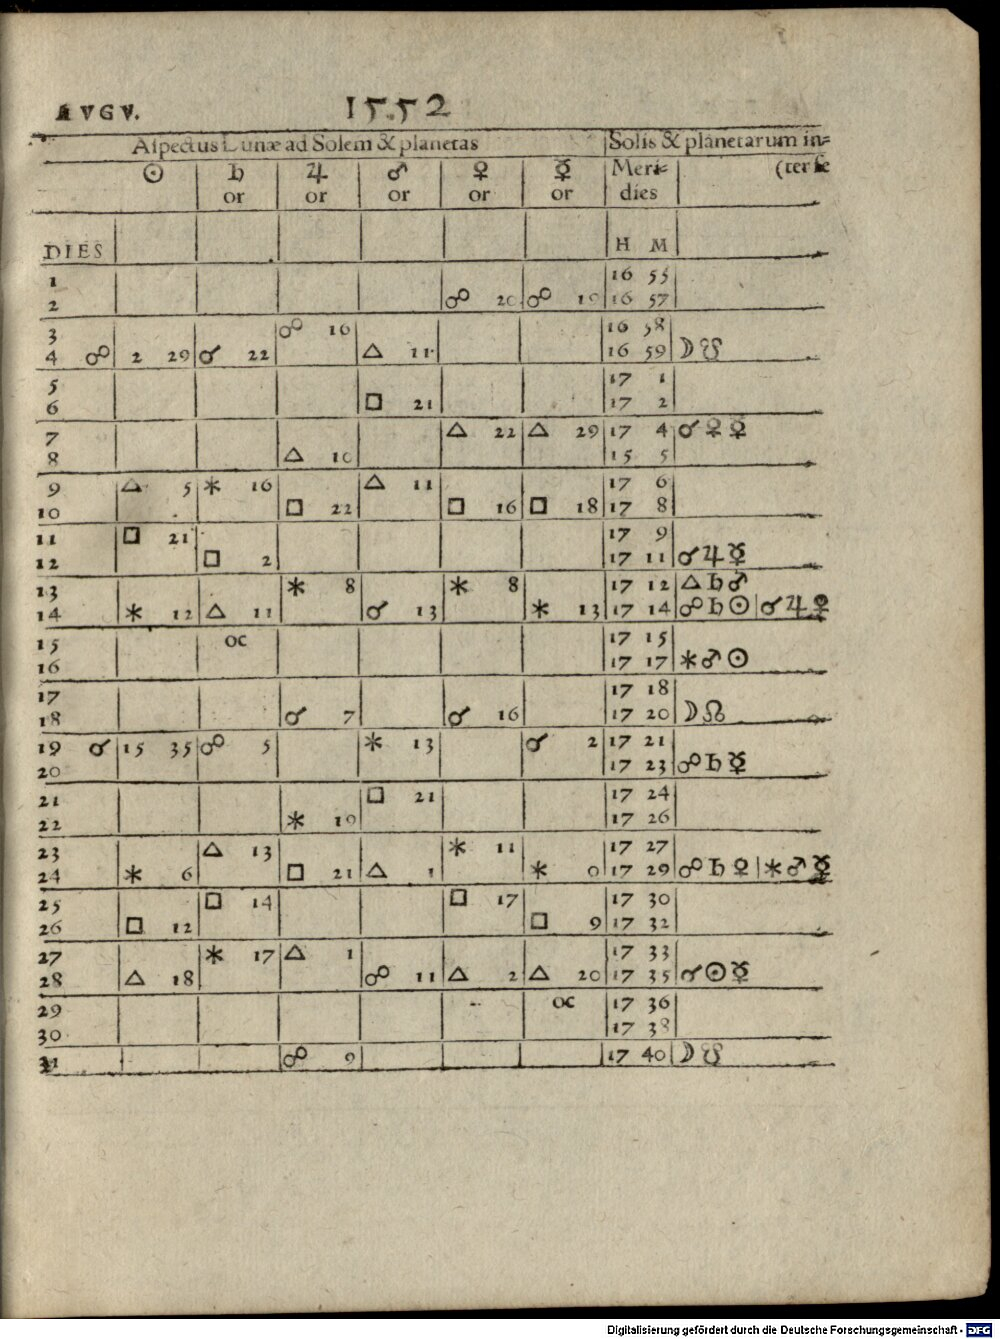 AVGV. 1552
Aspectus Lunæ ad Solem & planetas Solis & planetarum in=
☉ ♄ ♃ ♂ ♀ ☿ Meri- (ter se
or or or or or dies
DIES H M
1 16 55
2 ☍ 20 ☍ 19 16 57
3 ☍ 16 16 58
4 ☍ 2 29 ☌ 22 △ 11 16 59 ☽ ☋
5 17 1
6 □ 21 17 2
7 △ 22 △ 29 17 4 ☌ ♀ ☿
8 △ 10 15 5
9 △ 5 ⚹ 16 △ 11 17 6
10 □ 22 □ 16 □ 18 17 8
11 □ 21 17 9
12 □ 2 17 11 ☌ ♃ ☿
13 ⚹ 8 ⚹ 8 17 12 △ ♄ ♂
14 ⚹ 12 △ 11 ☌ 13 ⚹ 13 17 14 ☍ ♄ ☉ | ☌ ♃ ♀
15 oc 17 15
16 17 17 ⚹ ♂ ☉
17 17 18
18 ☌ 7 ☌ 16 17 20 ☽ ☊
19 ☌ 15 35 ☍ 5 ⚹ 13 ☌ 2 17 21
20 17 23 ☍ ♄ ☿
21 □ 21 17 24
22 ⚹ 19 17 26
23 △ 13 ⚹ 11 17 27
24 ⚹ 6 □ 21 △ 1 ⚹ 0 17 29 ☍ ♄ ♀ | ⚹ ♂ ☿
25 □ 14 □ 17 17 30
26 □ 12 □ 9 17 32
27 ⚹ 17 △ 1 17 33
28 △ 18 ☍ 11 △ 2 △ 20 17 35 ☌ ☉ ☿
29 oc 17 36
30 17 38
31 ☍ 9 17 40 ☽ ☋
Digitalisierung gefördert durch die Deutsche Forschungsgemeinschaft - DFG